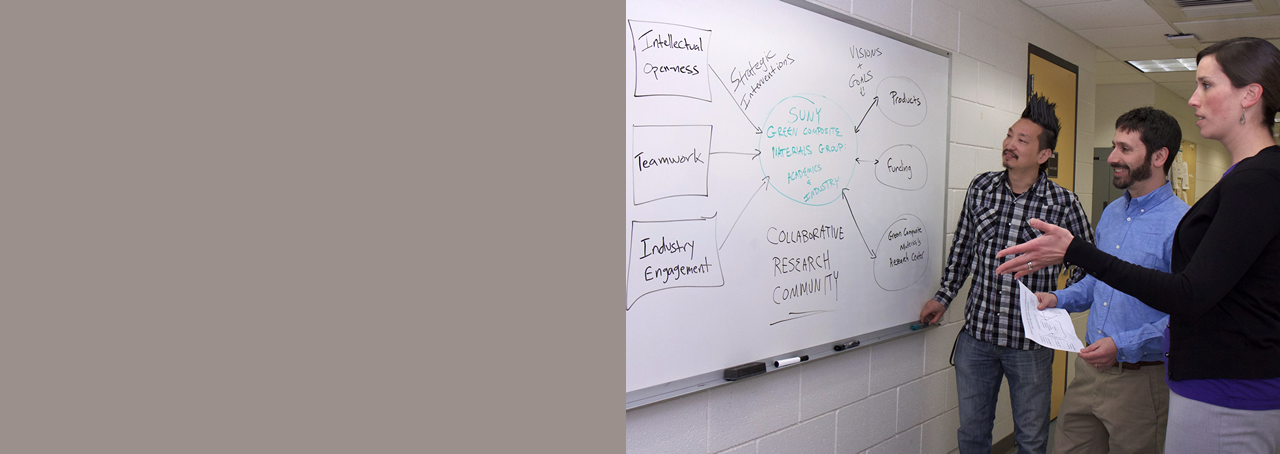 Intellectual
Open-ness
Teamwork
Industry
Engagement
Strategic
Interventions
SUNY
GREEN COMPOSITE
MATERIALS GROUP:
ACADEMICS
&
INDUSTRY
COLLABORATIVE
RESEARCH
COMMUNITY
VISIONS
+
GOALS
Products
Funding
Green Composite
Materials
Research Center